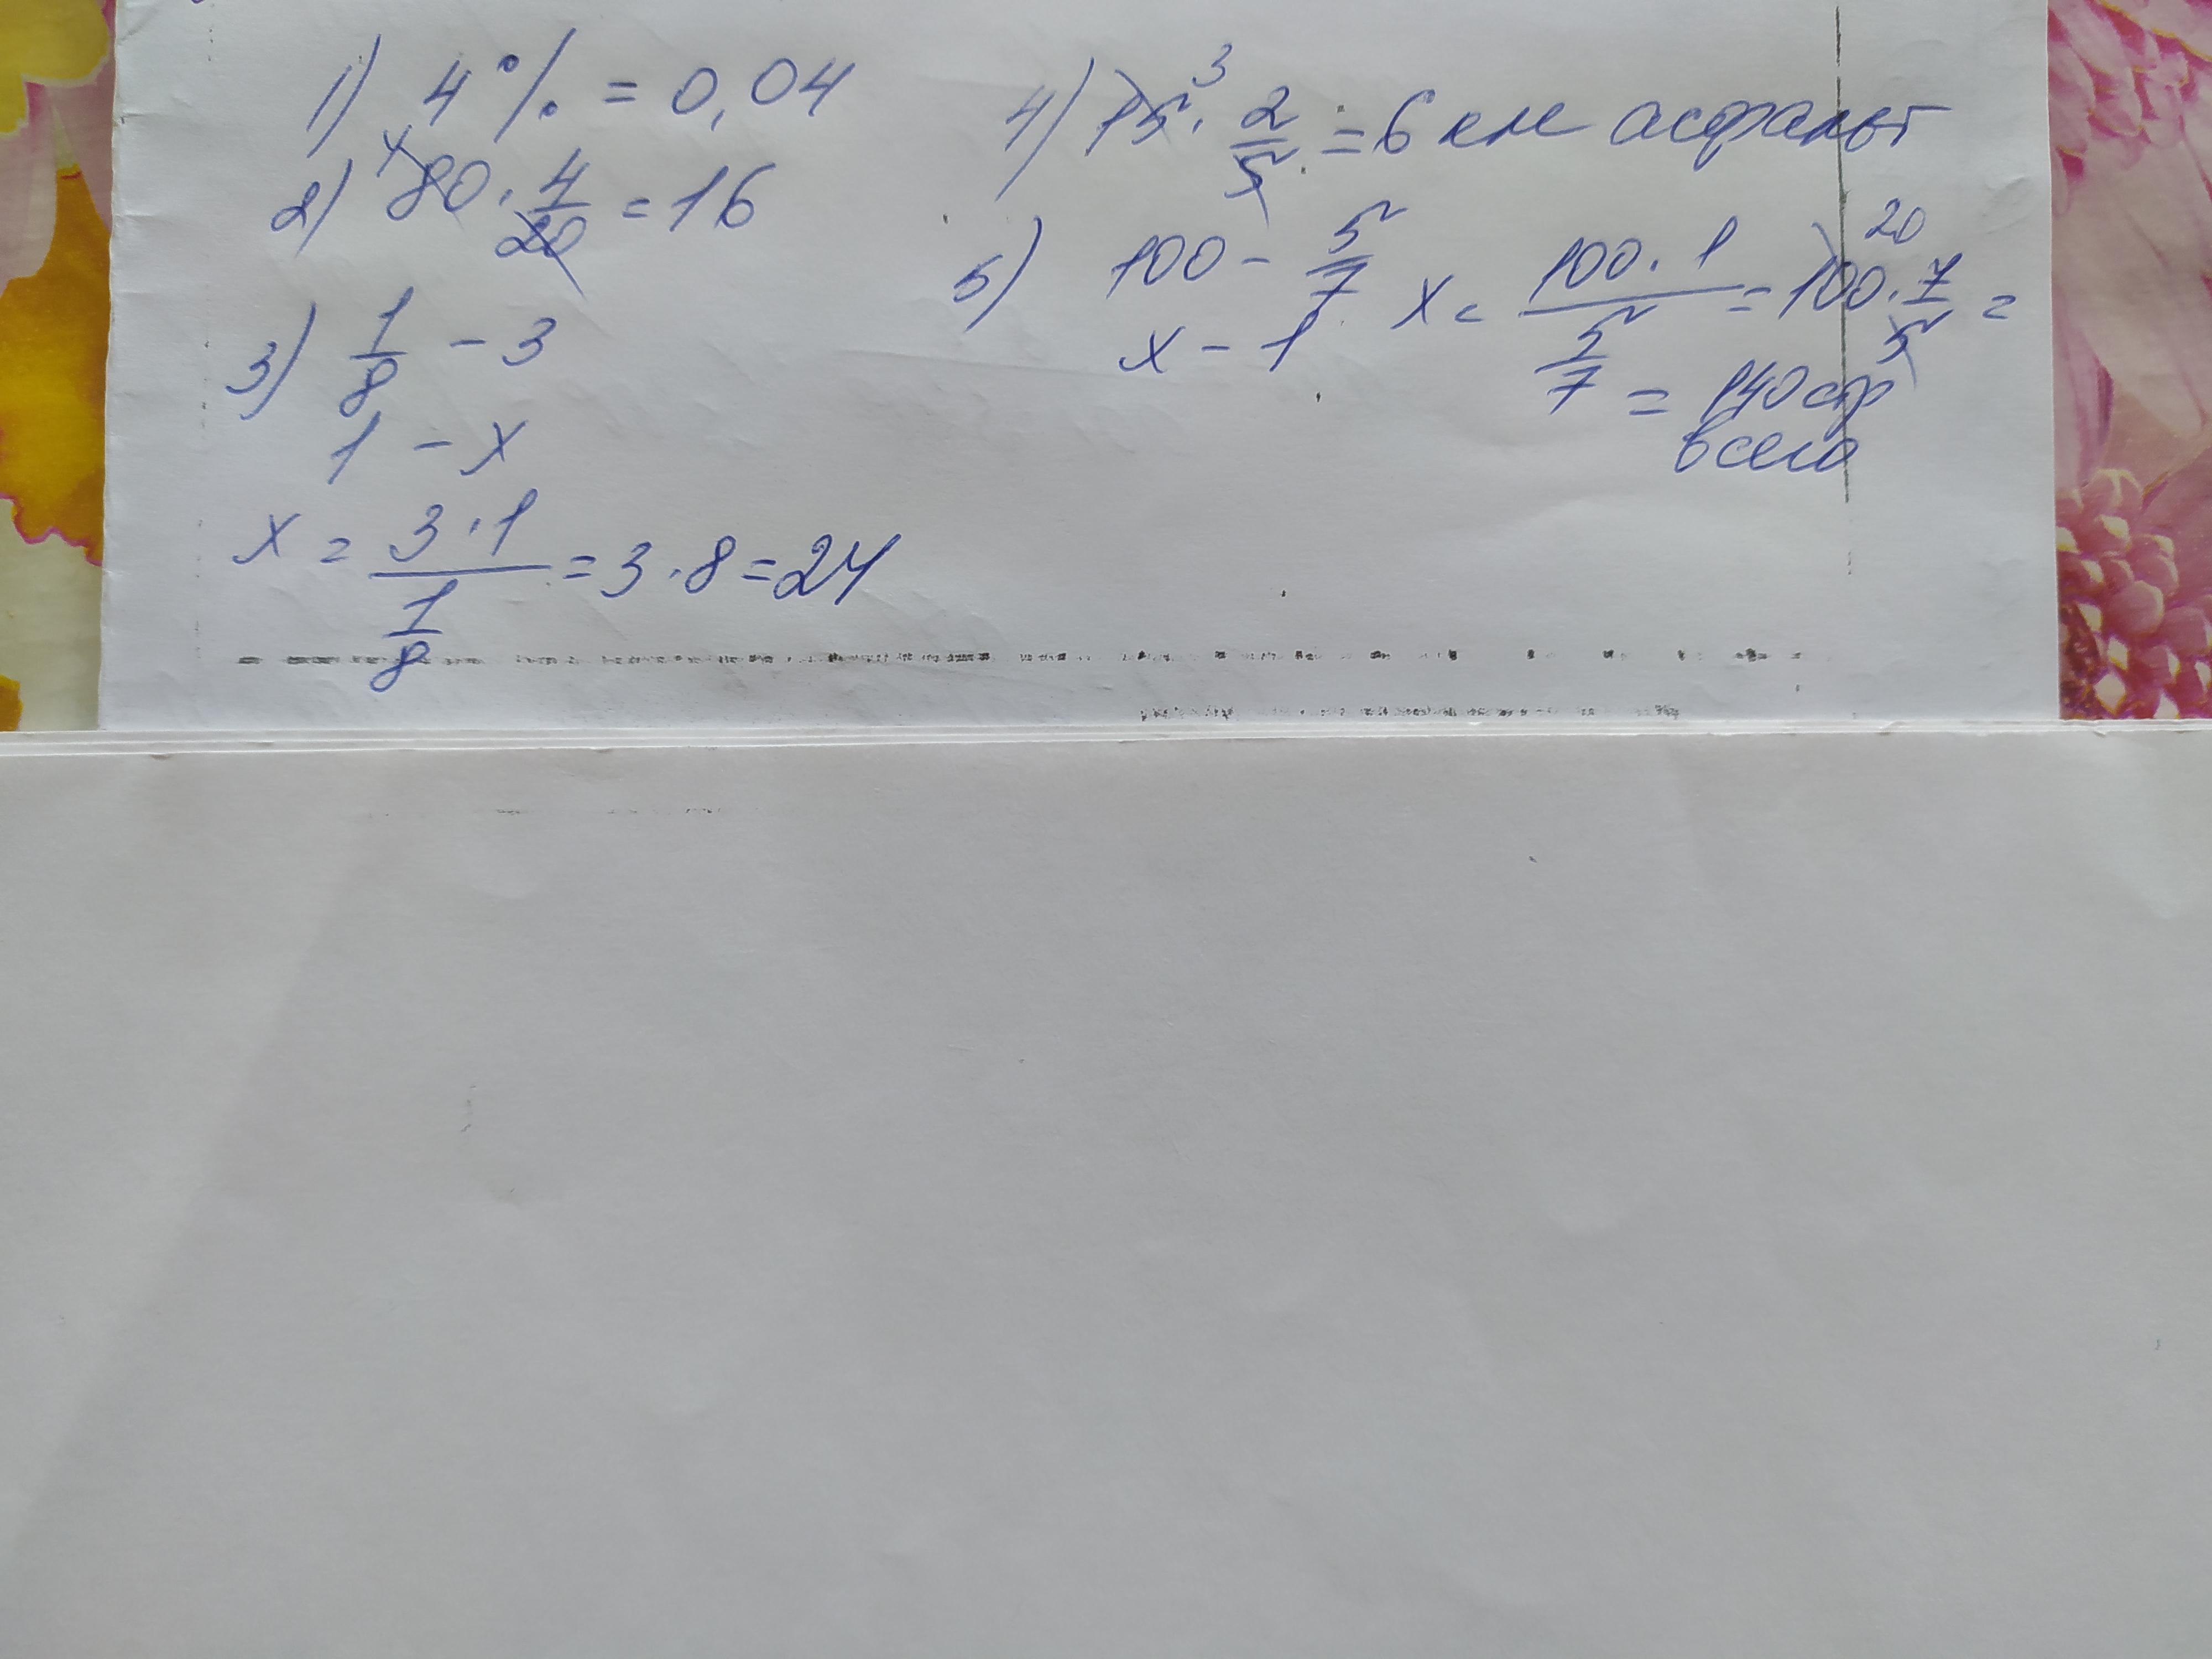 1) 4% = 0,04
2) 80 · 4/20 = 16
4
3) 1/8 - 3
1 - x
x = 3·1 / 1/8 = 3·8 = 24
4) 15 · 2/5 = 6 км асфальт
3
5) 100 - 5/7
x - 1
x = 100·1 / 5/7 = 100 · 7/5 =
20
= 140 стр
всего